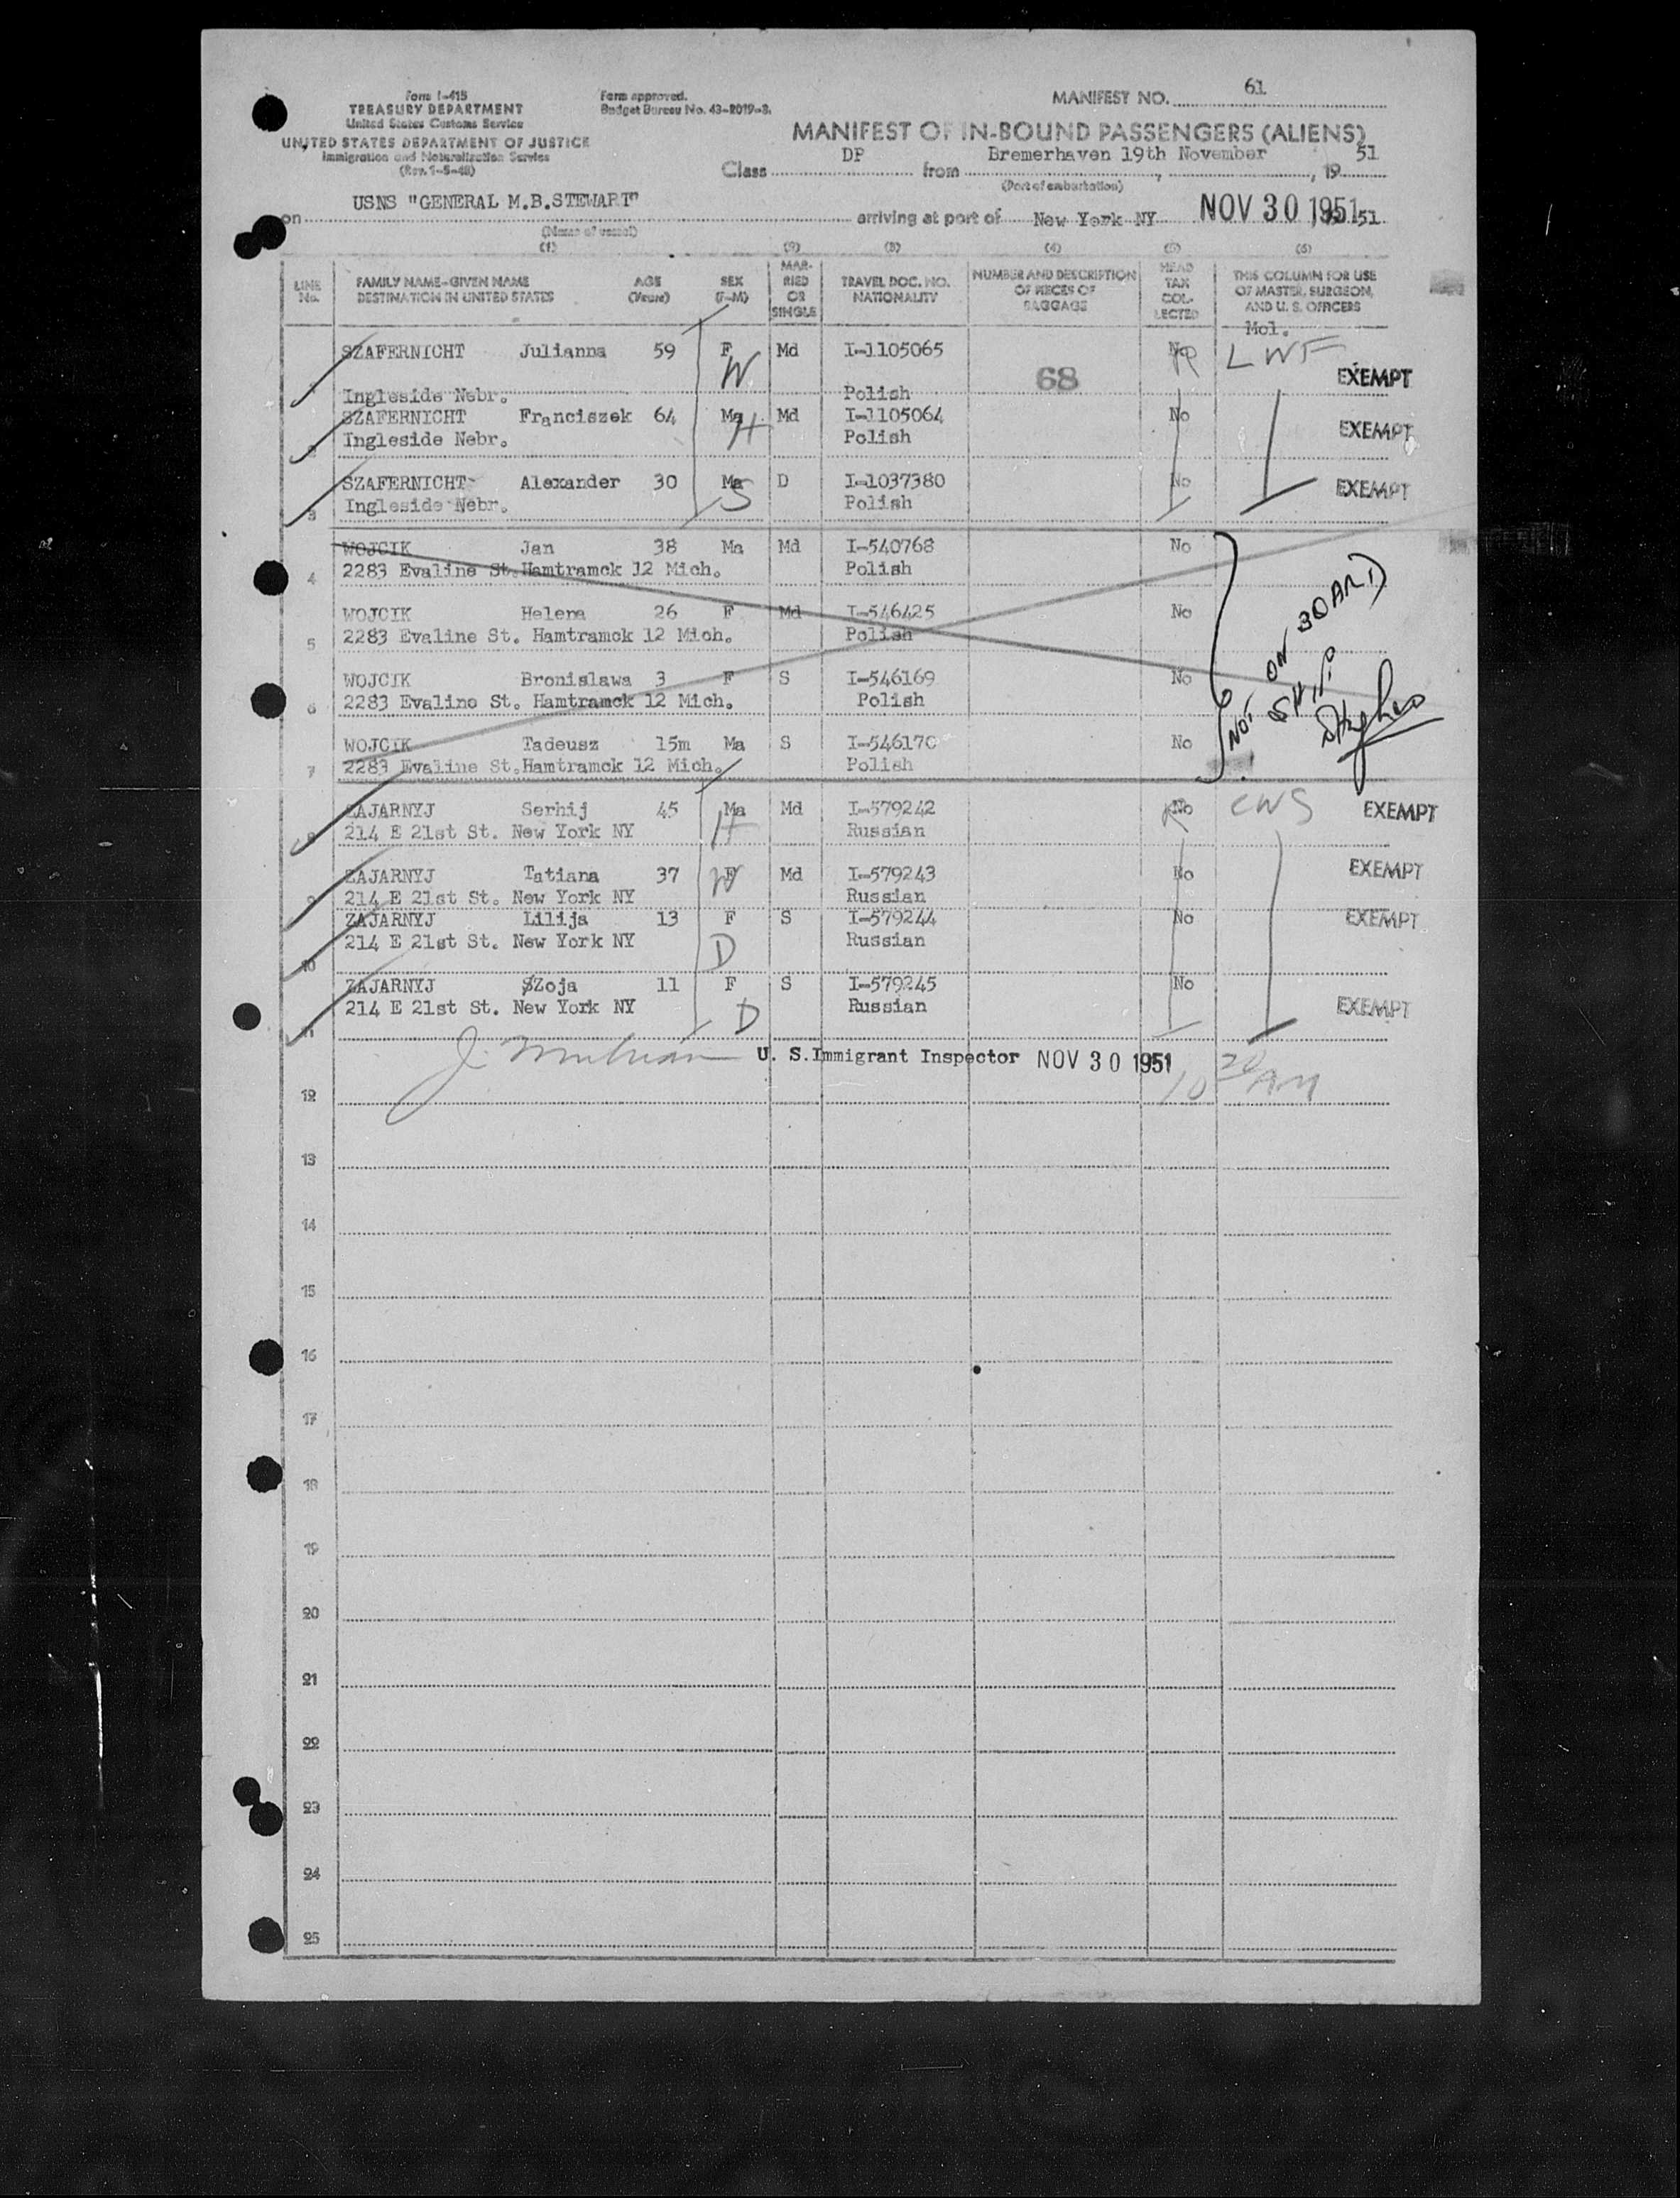 Form I-415
TREASURY DEPARTMENT
United States Customs Service
UNITED STATES DEPARTMENT OF JUSTICE
Immigration and Naturalization Service
(Rev. 1-5-48)
Form approved.
Budget Bureau No. 43-R019-3.
MANIFEST NO. 61
MANIFEST OF IN-BOUND PASSENGERS (ALIENS)
Class DP from Bremerhaven 19th November, 19 51
(Port of embarkation)
on USNS "GENERAL M.B.STEWART" arriving at port of New York NY NOV 30 1951 51
(Name of vessel)
(1) (2) (3) (4) (5) (6)
LINE No. FAMILY NAME-GIVEN NAME DESTINATION IN UNITED STATES AGE (Years) SEX (F-M) MARRIED OR SINGLE TRAVEL DOC. NO. NATIONALITY NUMBER AND DESCRIPTION OF PIECES OF BAGGAGE HEAD TAX COLLECTED THIS COLUMN FOR USE OF MASTER, SURGEON, AND U. S. OFFICERS
Mol.
SZAFERNICHT Julianna 59 F W Md I-1105065 68 No R LWF EXEMPT
1 Ingleside Nebr. Polish
SZAFERNICHT Franciszek 64 Ma H Md I-1105064 No EXEMPT
2 Ingleside Nebr. Polish
SZAFERNICHT Alexander 30 Ma S D I-1037380 No EXEMPT
3 Ingleside Nebr. Polish
WOJCIK Jan 38 Ma Md I-540768 No
4 2283 Evaline St.Hamtramck 12 Mich. Polish
WOJCIK Helena 26 F Md I-546425 No
5 2283 Evaline St. Hamtramck 12 Mich. Polish
WOJCIK Bronislawa 3 F S I-546169 No
6 2283 Evaline St. Hamtramck 12 Mich. Polish
WOJCIK Tadeusz 15m Ma S I-546170 No
7 2283 Evaline St.Hamtramck 12 Mich. Polish
NOT ON BOARD
SHIP
ZAJARNYJ Serhij 45 Ma H Md I-579242 No R CWS EXEMPT
8 214 E 21st St. New York NY Russian
ZAJARNYJ Tatiana 37 F W Md I-579243 No EXEMPT
9 214 E 21st St. New York NY Russian
ZAJARNYJ Lilija 13 F S I-579244 No EXEMPT
10 214 E 21st St. New York NY D Russian
ZAJARNYJ Zoja 11 F S I-579245 No
11 214 E 21st St. New York NY D Russian EXEMPT
U. S.Immigrant Inspector NOV 30 1951 10 30 AM
12
13
14
15
16
17
18
19
20
21
22
23
24
25